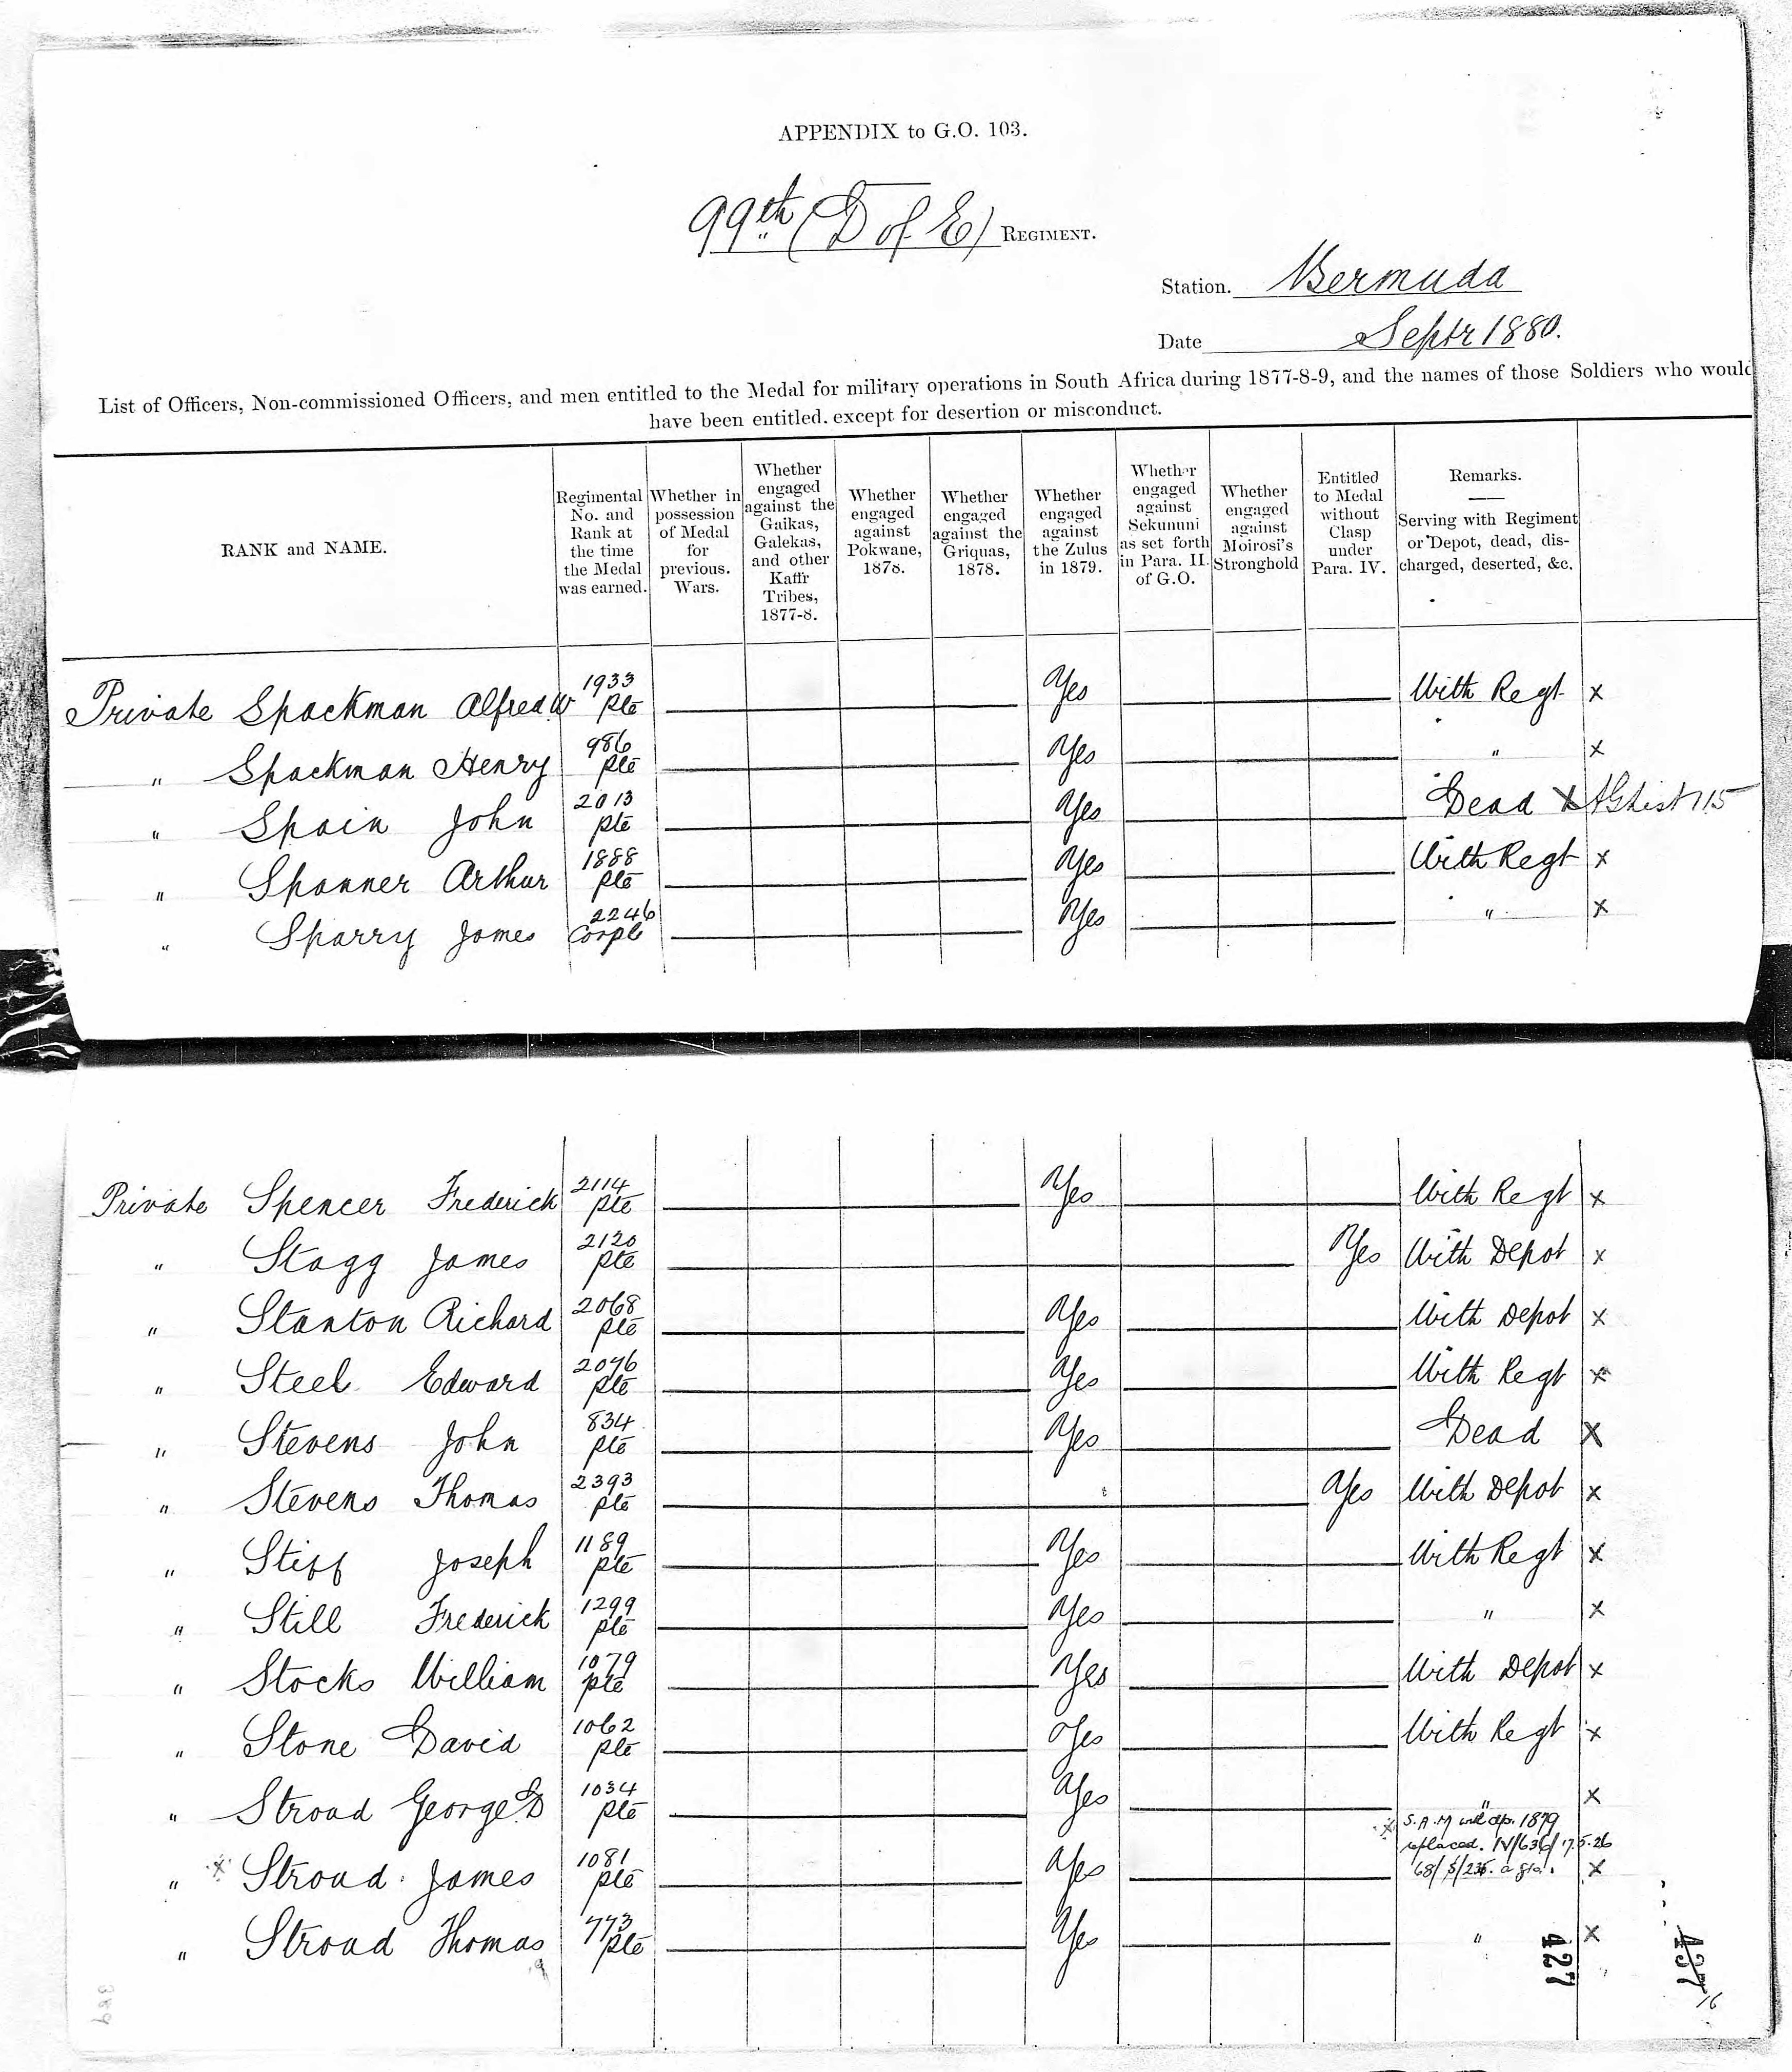 APPENDIX to G.O. 103.
99th (D of E) REGIMENT.
Station. Bermuda
Date Septr 1880.
List of Officers, Non-commissioned Officers, and men entitled to the Medal for military operations in South Africa during 1877-8-9, and the names of those Soldiers who would
have been entitled. except for desertion or misconduct.
RANK and NAME.
Regimental No. and Rank at the time the Medal was earned.
Whether in possession of Medal for previous. Wars.
Whether engaged against the Gaikas, Galekas, and other Kaffr Tribes, 1877-8.
Whether engaged against Pokwane, 1878.
Whether engaged against the Griquas, 1878.
Whether engaged against the Zulus in 1879.
Whether engaged against Sekununi as set forth in Para. II. of G.O.
Whether engaged against Moirosi's Stronghold
Entitled to Medal without Clasp under Para. IV.
Remarks.
Serving with Regiment or Depot, dead, discharged, deserted, &c.
Private Spackman Alfred W 1933 Pte Yes With Regt x
" Spackman Henry 986 Pte Yes " x
" Spain John 2013 Pte Yes Dead x AG List 115
" Spanner Arthur 1888 Pte Yes With Regt x
" Sparry James 2246 Corpl Yes " x
Private Spencer Frederick 2114 Pte Yes With Regt x
" Stagg James 2120 Pte Yes With Depot x
" Stanton Richard 2068 Pte Yes With Depot x
" Steel Edward 2076 Pte Yes With Regt x
" Stevens John 834 Pte Yes Dead x
" Stevens Thomas 2393 Pte Yes With Depot x
" Stiff Joseph 1189 Pte Yes With Regt x
" Still Frederick 1299 Pte Yes " x
" Stocks William 1079 Pte Yes With Depot x
" Stone David 1062 Pte Yes With Regt x
" Stroud George D 1034 Pte Yes " x
x S.A.M with clp. 1879
replaced. N/636/ 17.5.26
" x Stroud James 1081 Pte Yes 68/S/235. x
" Stroud Thomas 773 Pte Yes " x
427